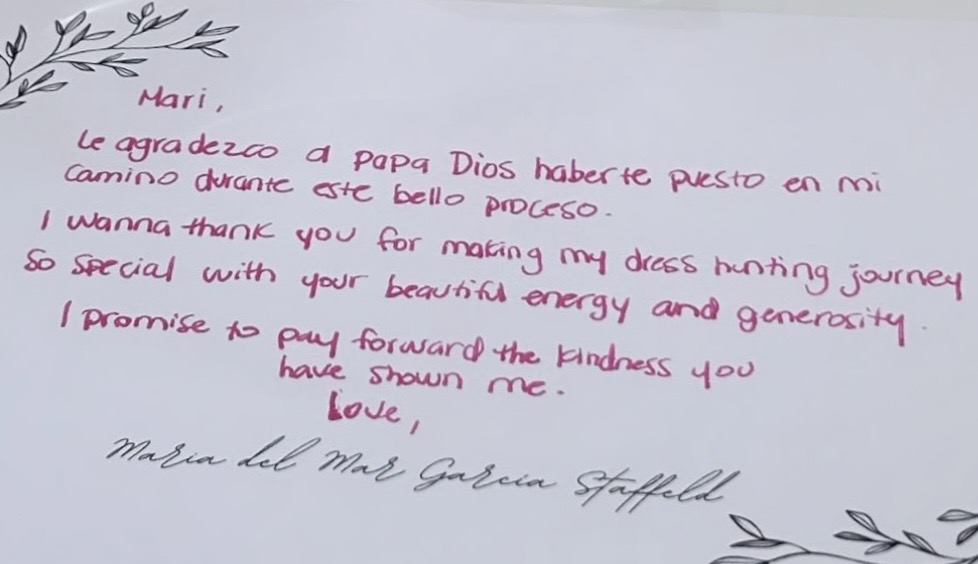 Mari,
Le agradezco a papa Dios haberte puesto en mi
camino durante este bello proceso.
I wanna thank you for making my dress hunting journey
So special with your beautiful energy and generosity.
I promise to pay forward the kindness you
have shown me.
Love,
Maria del Mar Garcia Staffeld